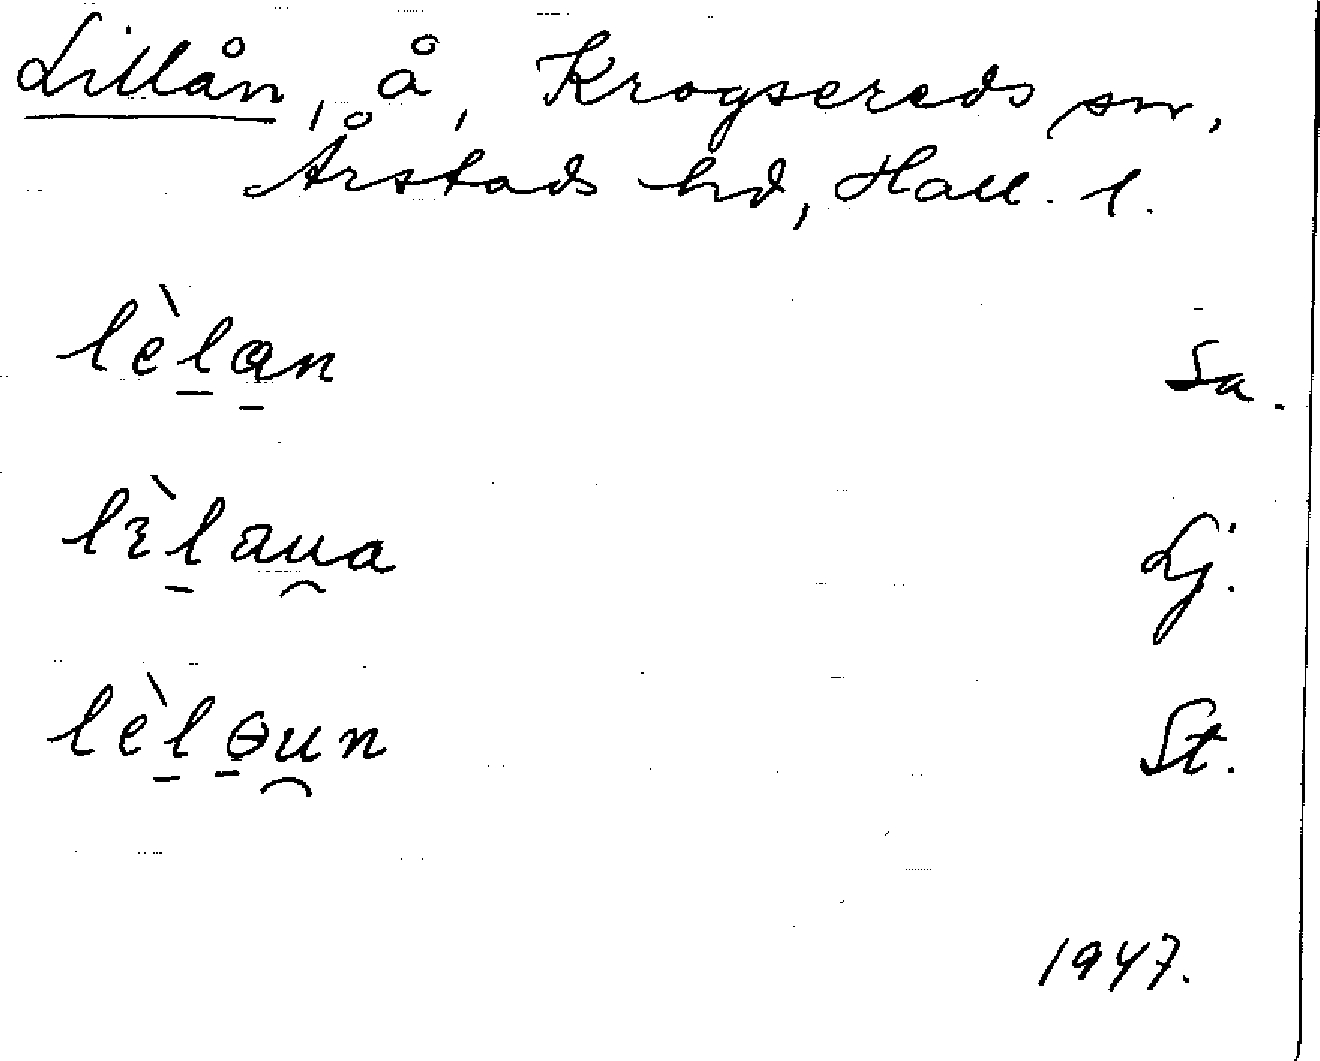 Lillån, å, Krogsereds sn,
Årstads hd, Hall. l.
lèḻa̱n Sa.
lɛ̀ḻau̯a Lj.
lèḻɵ̱u̯n St.
1947.